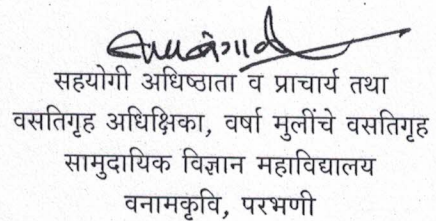 सहयोगी अधिष्ठाता व प्राचार्य तथा
वसतिगृह अधिक्षिका, वर्षा मुलींचे वसतिगृह
सामुदायिक विज्ञान महाविद्यालय
वनामकृवि, परभणी